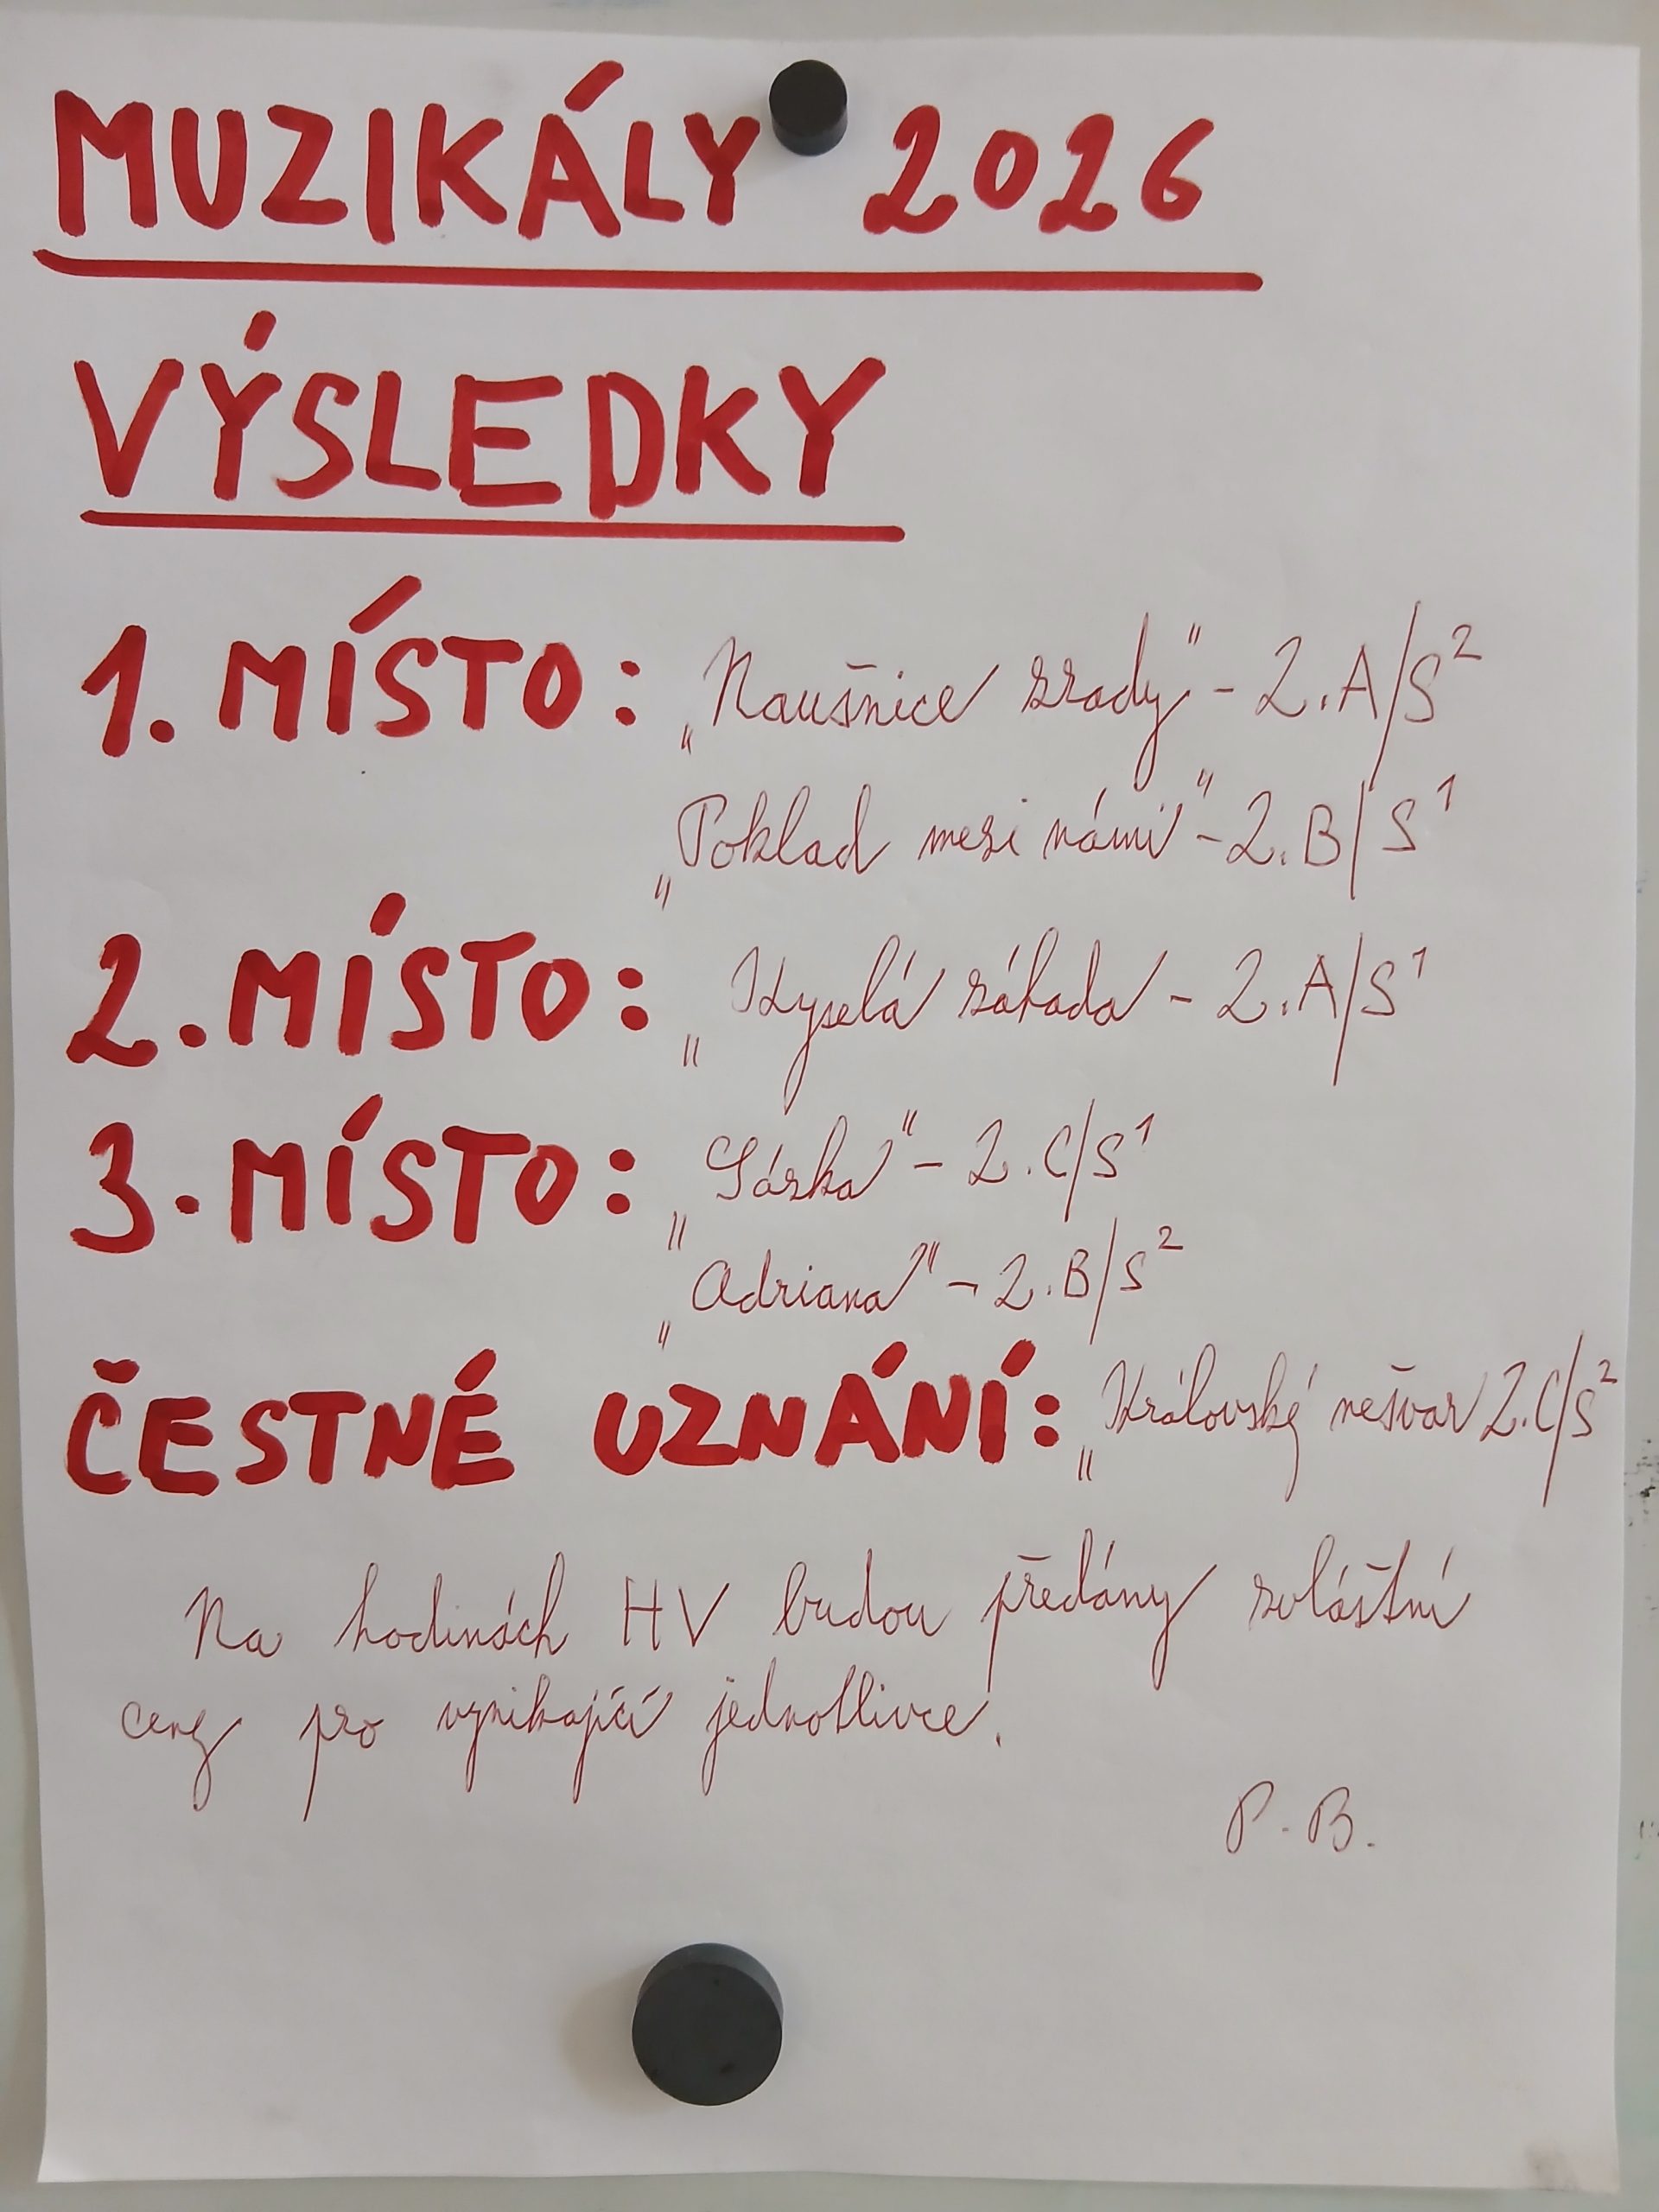 MUZIKÁLY 2026
VÝSLEDKY
1. MÍSTO: „Naušnice zrady" - 2.A/S²
„Poklad mezi námi" - 2.B/S¹
2. MÍSTO: „Kyselá záhada - 2.A/S¹
3. MÍSTO: „Sázka" - 2.C/S¹
„Adriana" - 2.B/S²
ČESTNÉ UZNÁNÍ: „Královský nešvar 2.C/S²
Na hodinách HV budou předány zvláštní
ceny pro vynikající jednotlivce.
P. B.